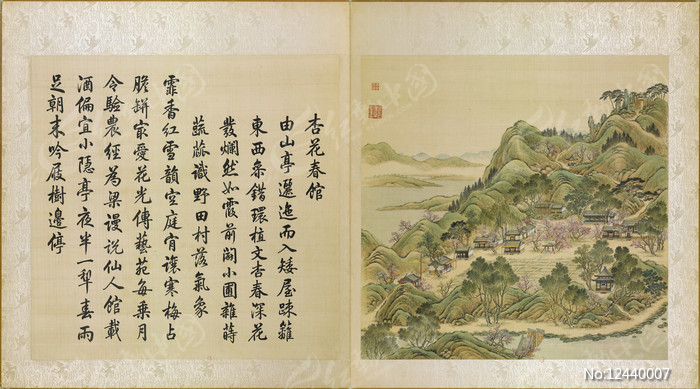 杏花春館
由山亭邐迤而入矮屋疎籬
東西叅錯環植文杏春深花
發爛然如霞前闢小圃雜蒔
蔬蓏識野田村落氣象
霏香紅雪韻空庭肯讓寒梅占
膽缾㝡愛花光傳藝苑每乘月
令驗農經為梁謾說仙人館載
酒偏宜小隱亭夜半一犁春雨
足朝来吟屐樹邊停
No:12440007